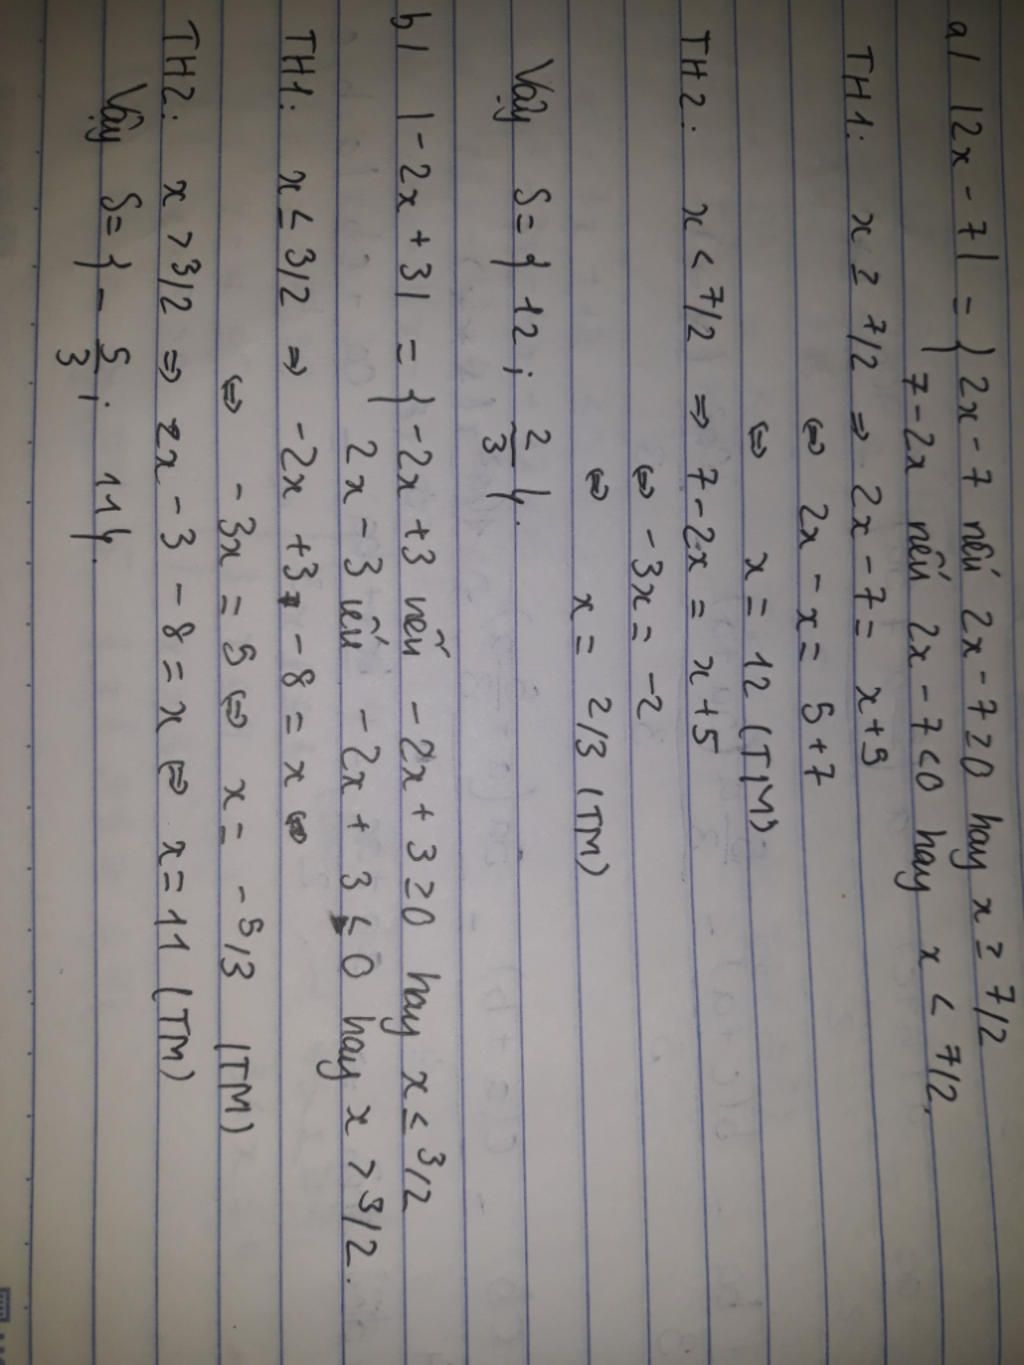 a/ |2x - 7| = { 2x - 7 nếu 2x - 7 ≥ 0 hay x ≥ 7/2
7 - 2x nếu 2x - 7 < 0 hay x < 7/2.
TH1: x ≥ 7/2 ⇒ 2x - 7 = x + 5
⇔ 2x - x = 5 + 7
⇔ x = 12 (TM).
TH2: x < 7/2 ⇒ 7 - 2x = x + 5
⇔ -3x = -2
⇔ x = 2/3 (TM)
Vậy S = { 12 ; 2/3 }.
b/ |-2x + 3| = { -2x + 3 nếu -2x + 3 ≥ 0 hay x ≤ 3/2
2x - 3 nếu -2x + 3 < 0 hay x > 3/2.
TH1: x ≤ 3/2 ⇒ -2x + 3 - 8 = x ⇔
⇔ -3x = 5 ⇔ x = -5/3 (TM)
TH2: x > 3/2 ⇒ 2x - 3 - 8 = x ⇔ x = 11 (TM)
Vậy S = { -5/3 ; 11 }.